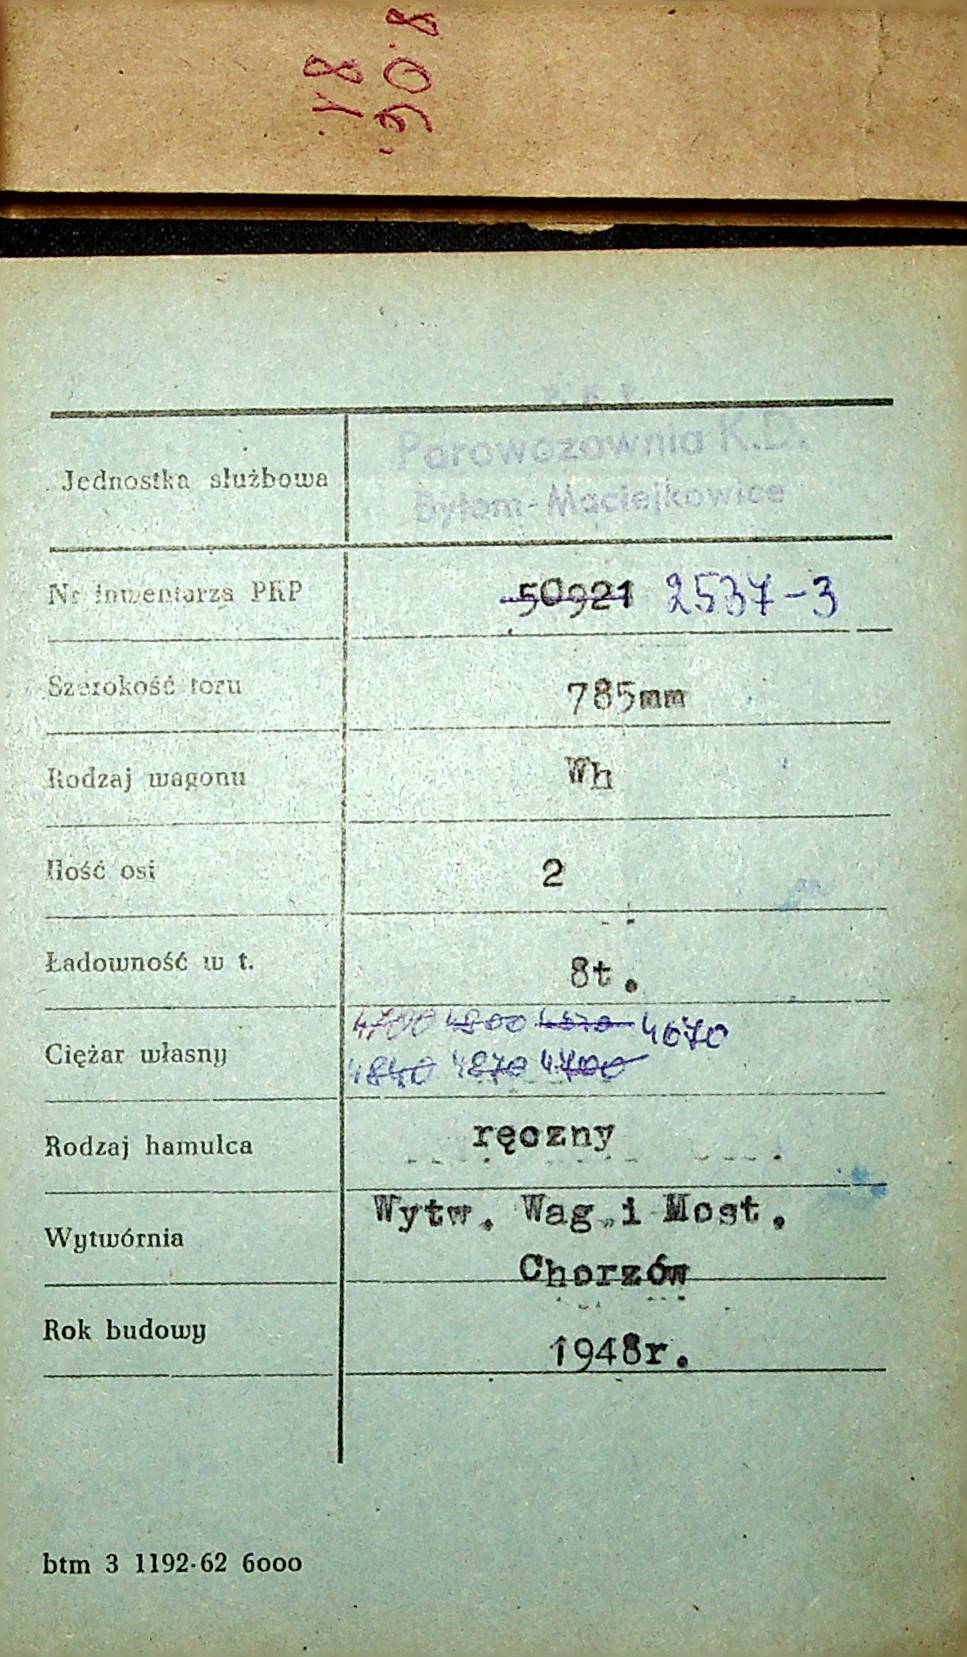 P.K.P.
Parowozownia K.D.
Bytom-Maciejkowice
Jednostka służbowa
Nr inwentarza PKP 50921 2537-3
Szerokość toru 785mm
Rodzaj wagonu Wh
Ilość osi 2
Ładowność w t. 8t.
4700 4800 4670
Ciężar własny
4840 4870 4700
Rodzaj hamulca ręczny
Wytw. Wag. i Most.
Wytwórnia
Chorzów
Rok budowy 1948r.
btm 3 1192-62 6000